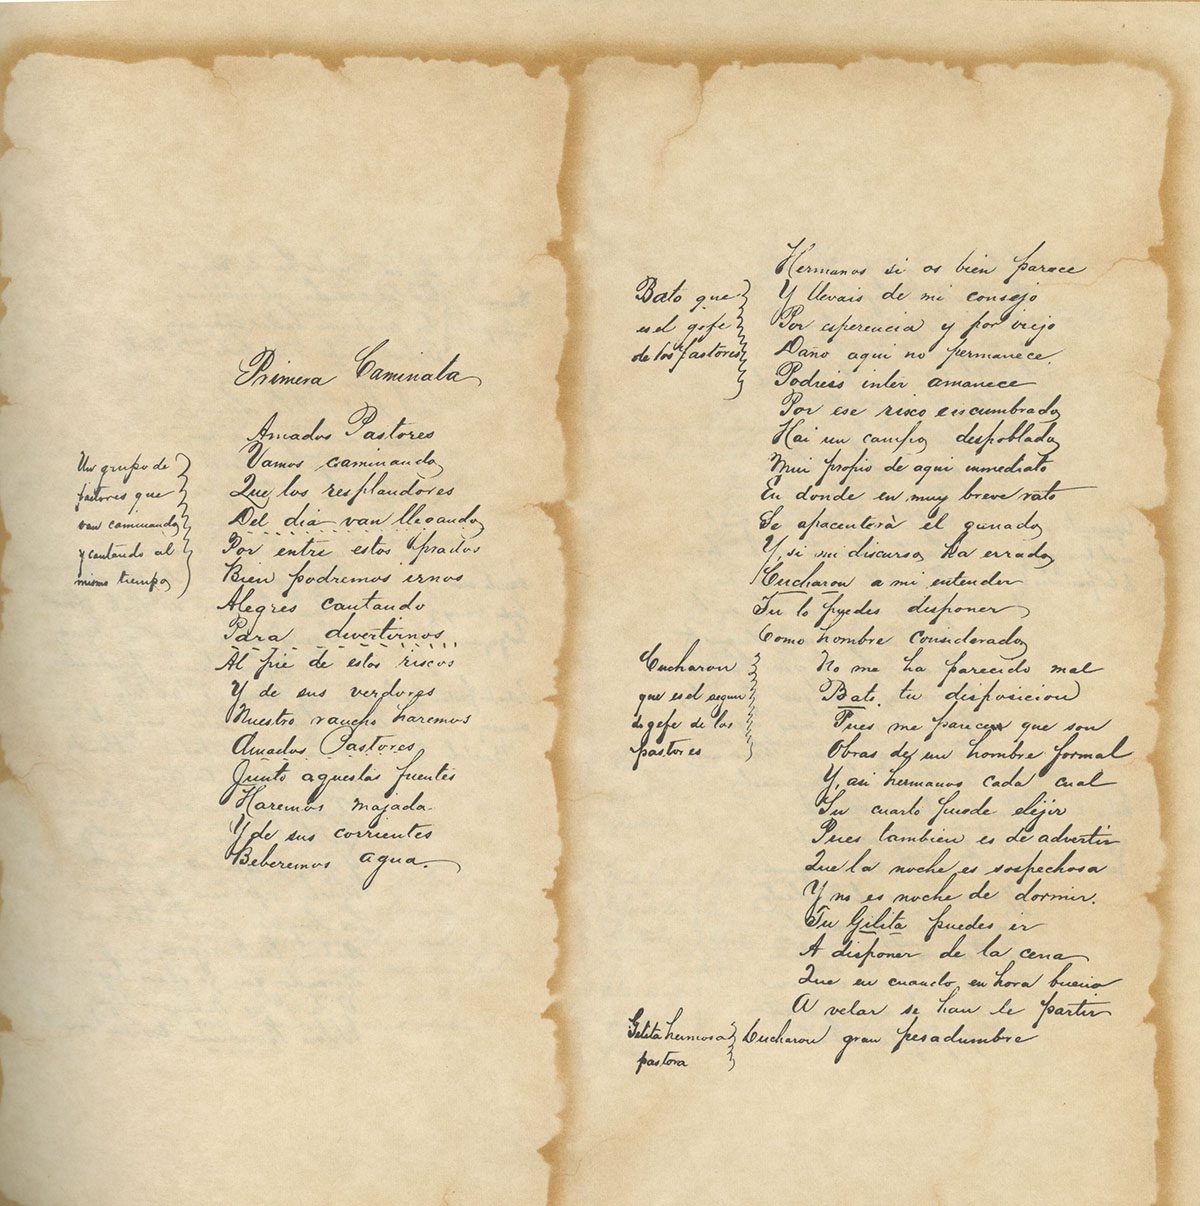 Primera Caminata
Un grupo de
pastores que
van caminando
y cantando al
mismo tiempo
Amados Pastores
Vamos caminando
Que los resplandores
Del dia van llegando
Por entre estos prados
Bien podremos irnos
Alegres cantando
Para divertirnos
Al pie de estos riscos
Y de sus verdores
Nuestro rancho haremos
Amados Pastores
Junto aquestas fuentes
Haremos majada
Y de sus corrientes
Beberemos agua.
Bato que
es el gefe
de los pastores
Hermanos si os bien parece
Y llevais de mi consejo
Por esperencia y por viejo
Daño aqui no permanece.
Podreis inter amanece
Por ese risco encumbrado
Hai un campo despoblado
Mui propio de aqui inmediato
En donde en muy breve rato
Se apacenterà el ganado
Y, si mi discurso ha errado
Cucharon a mi entender
Tu lo puedes disponer
Como hombre considerado
Cucharon
que es el segun
do gefe de los
pastores
No me ha parecido mal
Bato, tu disposicion
Pues me parecen que son
Obras de un hombre formal
Y, asi hermanos cada cual
Su cuarto puede elijir
Pues tambien es de advertir
Que la noche es sospechosa
Y no es noche de dormir.
Tu Gilita puedes ir
A disponer de la cena
Que en cuando, en hora buena
A velar se han de partir
Gilita hermosa
pastora
Cucharon gran pesadumbre